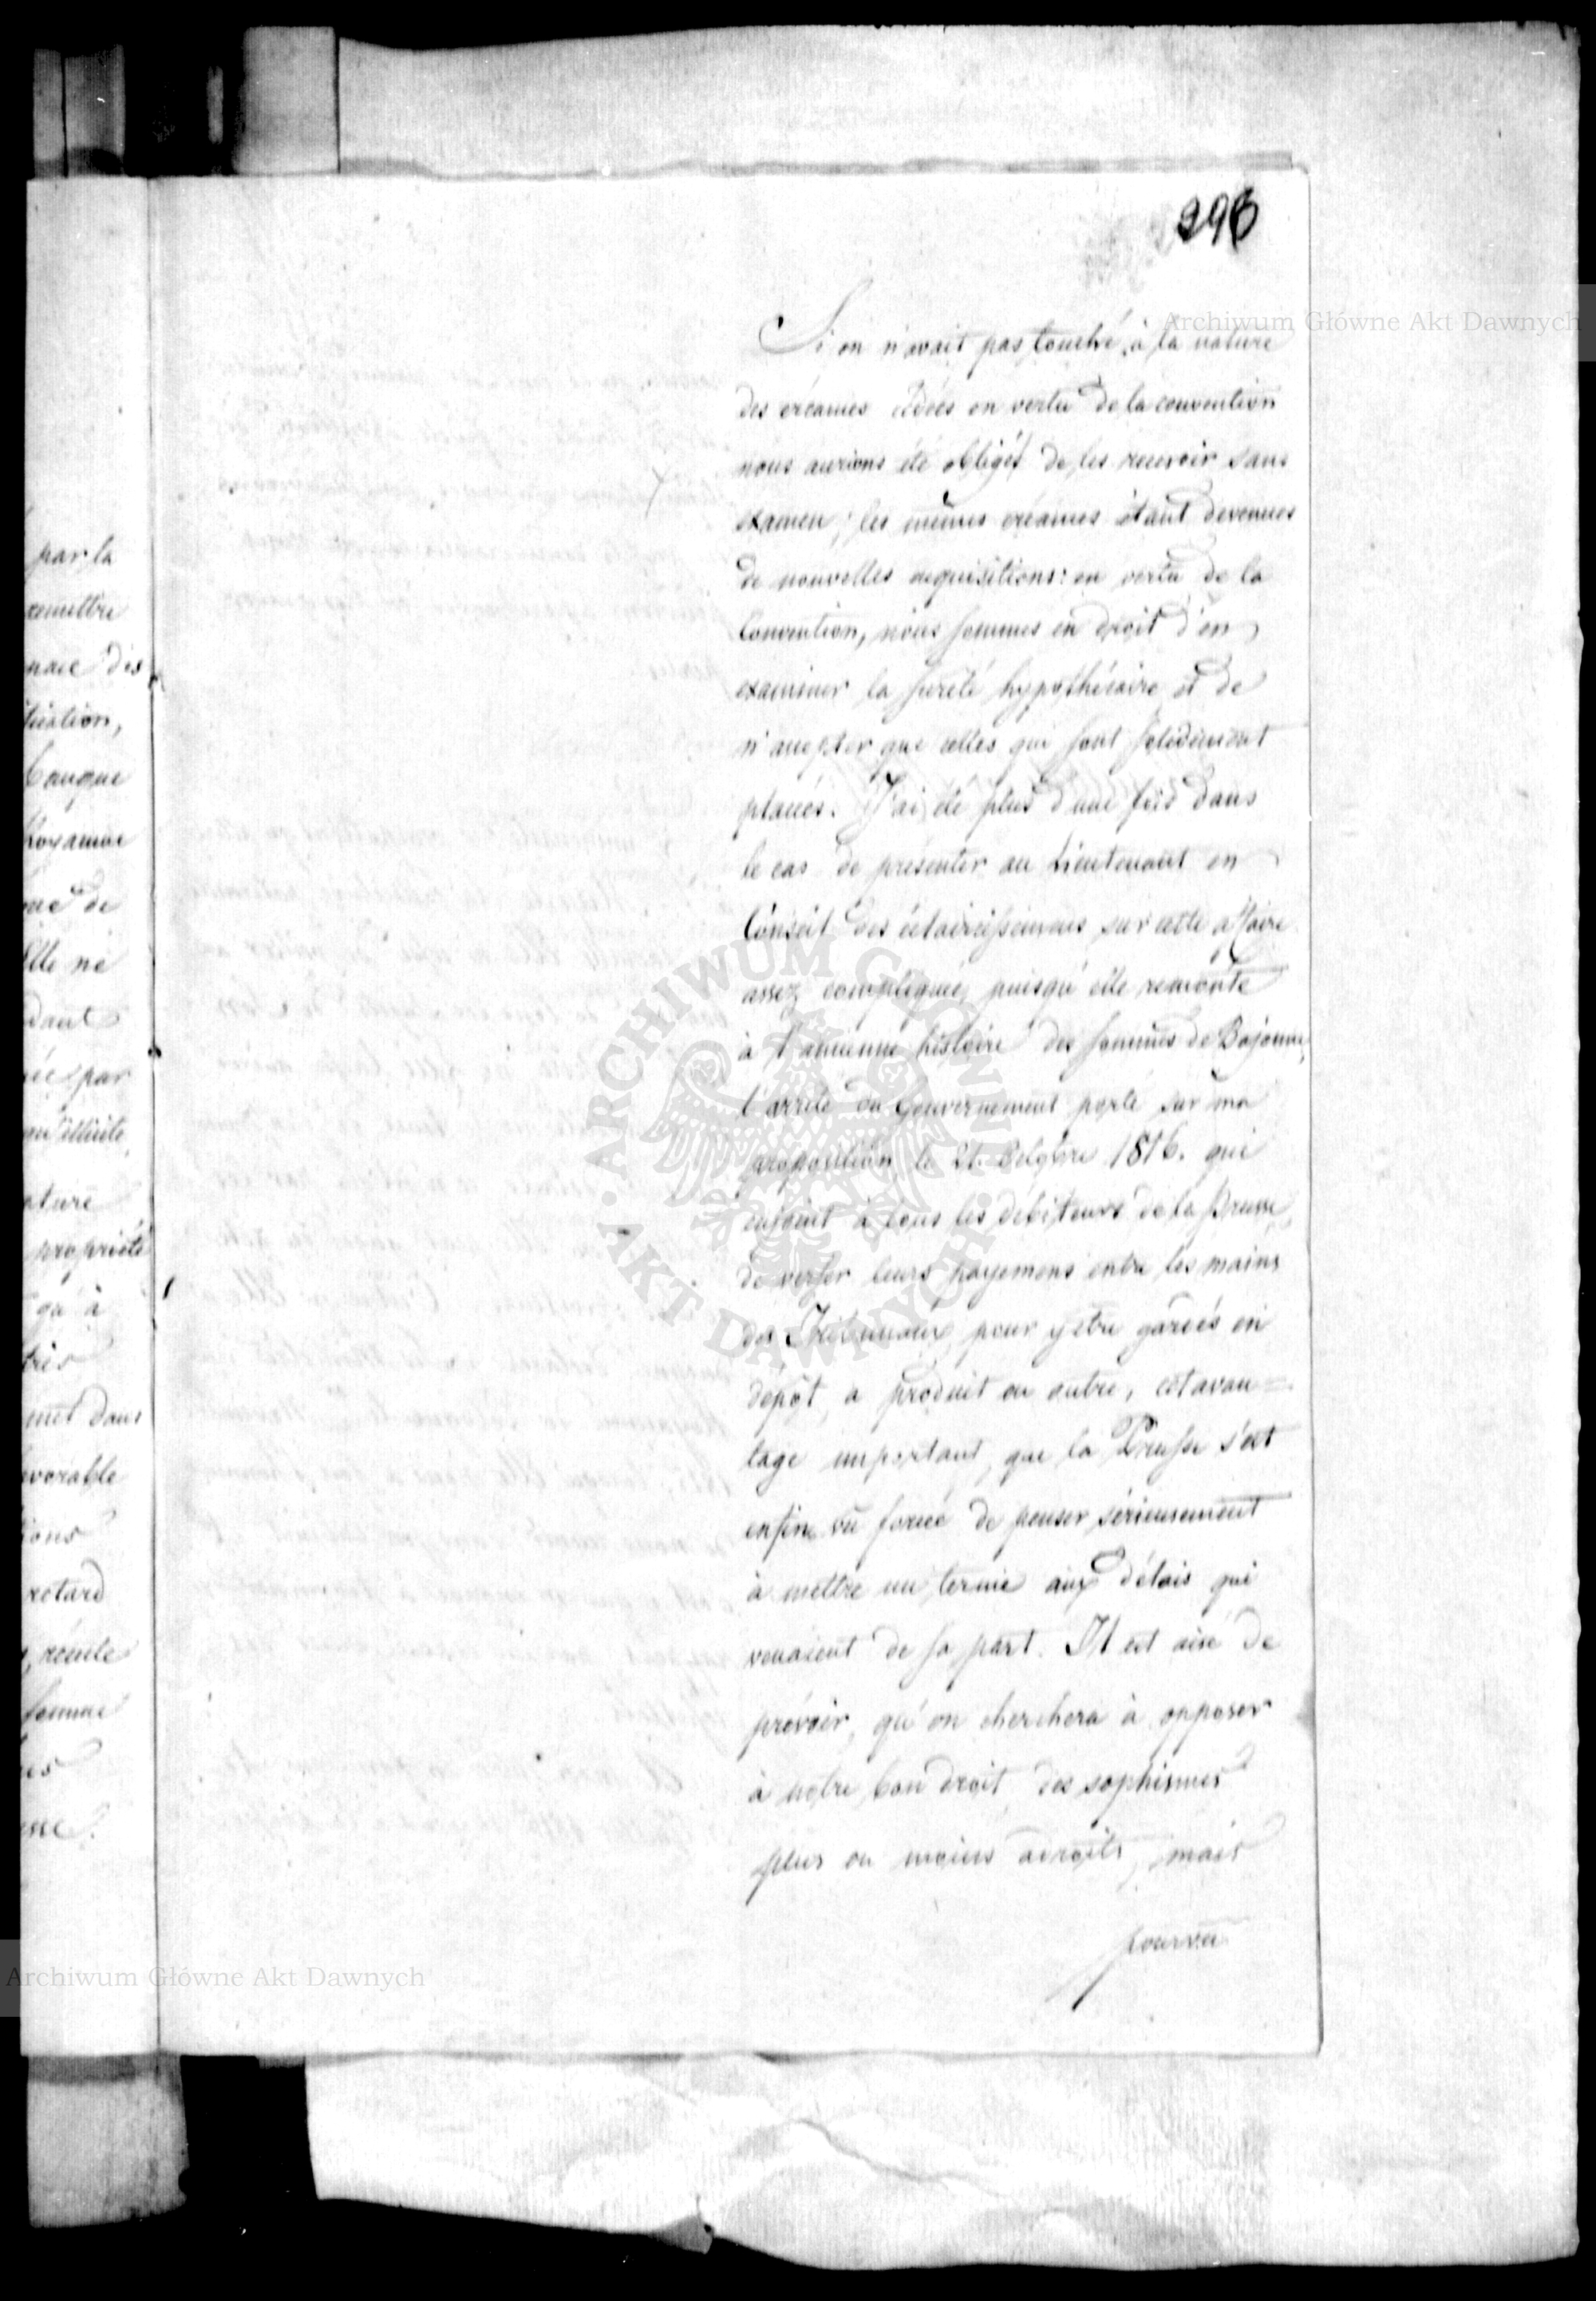 296
Archiwum Główne Akt Dawnych
Si on n'avait pas touché à la nature
des créances cédées en vertu de la convention
nous aurions été obligés de les recevoir sans
examen; les mêmes créances étant devenues
de nouvelles acquisitions: en vertu de la
Convention, nous sommes en droit d'en
examiner la sureté hypothécaire et de
n'accepter que celles qui sont solidement
placées. J'ai été plus d'une fois dans
le cas de présenter au Lieutenant en
Conseil des éclaircissemens sur cette affaire
assez compliquée, puisqu'elle remonte
à l'ancienne histoire des sommes de Bajonne,
l'arrêté du Gouvernement porté sur ma
proposition le 21. Octobre 1816. qui
enjoint à tous les débiteurs de la Prusse,
de verser leurs payemens entre les mains
des Tribunaux, pour y etre gardés en
dépôt, a produit en outre, cet avan=
tage important, que la Prusse s'est
enfin vu forcée de penser sérieusement
à mettre un terme aux délais qui
venaient de sa part. Il est aisé de
prévoir, qu'on cherchera à opposer
à notre bon droit, des sophismes
plus ou moins adroits, mais
pourvu
par la
remettre
banque
Royaume
Elle ne
par
propriété
qu'à
dans
retard
Archiwum Główne Akt Dawnych
ARCHIWUM GŁÓWNE AKT DAWNYCH